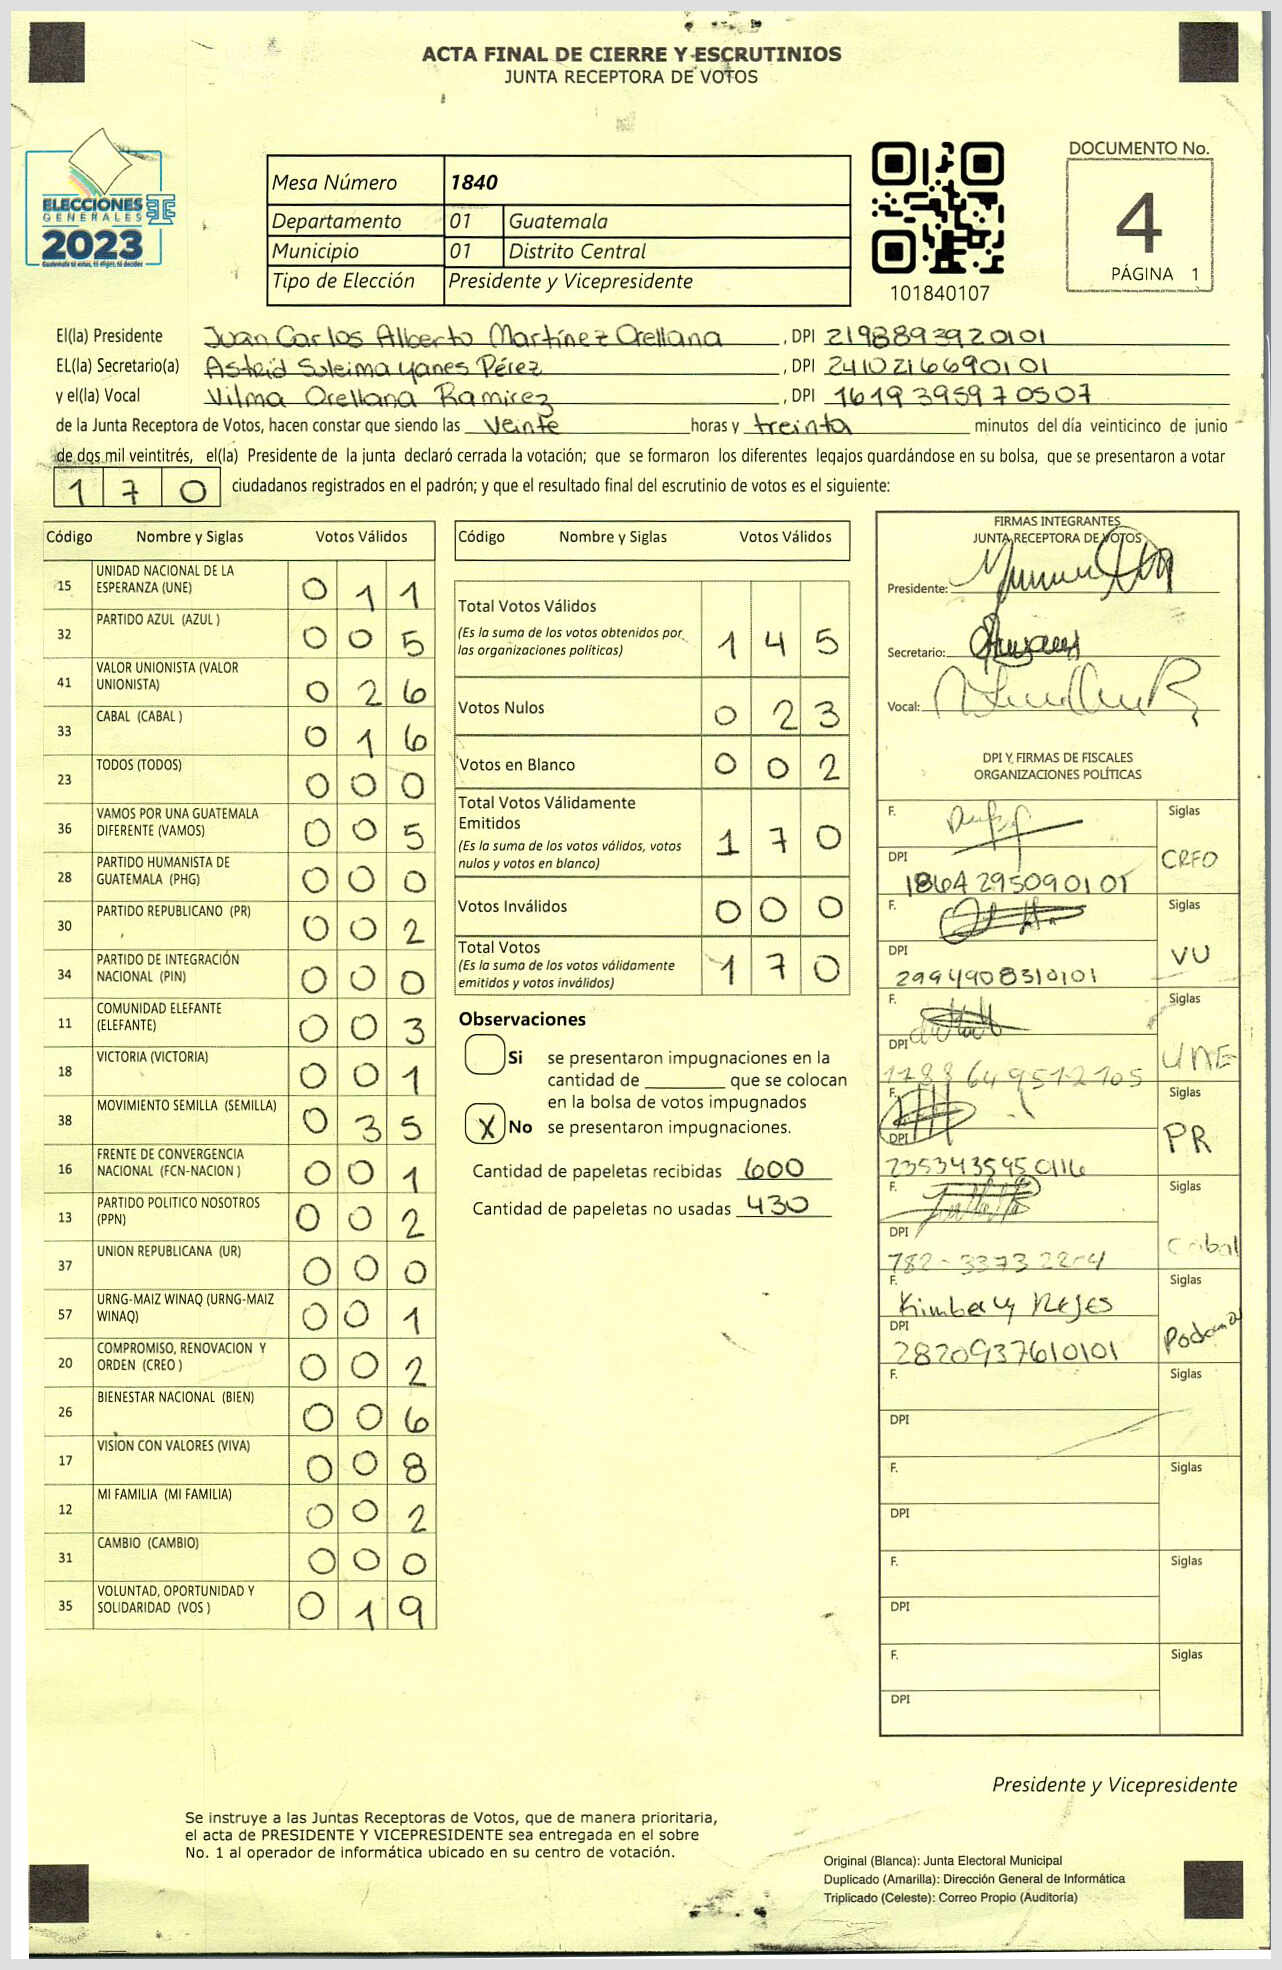 ACTA FINAL DE CIERRE Y ESCRUTINIOS
JUNTA RECEPTORA DE VOTOS
ELECCIONES
GENERALES
2023
Mesa Número 1840
Departamento 01 Guatemala
Municipio 01 Distrito Central
Tipo de Elección Presidente y Vicepresidente
101840107
DOCUMENTO No.
4
PÁGINA 1
El(la) Presidente Juan Carlos Alberto Martínez Orellana, DPI 2198893920101
EL(la) Secretario(a) Astrid Suleima Yanes Pérez, DPI 2410216690101
y el(la) Vocal Vilma Orellana Ramirez, DPI 1619395970507
de la Junta Receptora de Votos, hacen constar que siendo las veinte horas y treinta minutos del día veinticinco de junio
de dos mil veintitrés, el(la) Presidente de la junta declaró cerrada la votación; que se formaron los diferentes legajos guardándose en su bolsa, que se presentaron a votar
170 ciudadanos registrados en el padrón; y que el resultado final del escrutinio de votos es el siguiente:
Código Nombre y Siglas Votos Válidos
15 UNIDAD NACIONAL DE LA ESPERANZA (UNE) 011
32 PARTIDO AZUL (AZUL ) 005
41 VALOR UNIONISTA (VALOR UNIONISTA) 026
33 CABAL (CABAL ) 016
23 TODOS (TODOS) 000
36 VAMOS POR UNA GUATEMALA DIFERENTE (VAMOS) 005
28 PARTIDO HUMANISTA DE GUATEMALA (PHG) 000
30 PARTIDO REPUBLICANO (PR) 002
34 PARTIDO DE INTEGRACIÓN NACIONAL (PIN) 000
11 COMUNIDAD ELEFANTE (ELEFANTE) 003
18 VICTORIA (VICTORIA) 001
38 MOVIMIENTO SEMILLA (SEMILLA) 035
16 FRENTE DE CONVERGENCIA NACIONAL (FCN-NACION ) 001
13 PARTIDO POLITICO NOSOTROS (PPN) 002
37 UNION REPUBLICANA (UR) 000
57 URNG-MAIZ WINAQ (URNG-MAIZ WINAQ) 001
20 COMPROMISO, RENOVACION Y ORDEN (CREO ) 002
26 BIENESTAR NACIONAL (BIEN) 006
17 VISION CON VALORES (VIVA) 008
12 MI FAMILIA (MI FAMILIA) 002
31 CAMBIO (CAMBIO) 000
35 VOLUNTAD, OPORTUNIDAD Y SOLIDARIDAD (VOS ) 019
Código Nombre y Siglas Votos Válidos
Total Votos Válidos 145
(Es la suma de los votos obtenidos por
las organizaciones políticas)
Votos Nulos 023
Votos en Blanco 002
Total Votos Válidamente
Emitidos 170
(Es la suma de los votos válidos, votos
nulos y votos en blanco)
Votos Inválidos 000
Total Votos 170
(Es la suma de los votos válidamente
emitidos y votos inválidos)
Observaciones
Si se presentaron impugnaciones en la
cantidad de ________ que se colocan
en la bolsa de votos impugnados
X No se presentaron impugnaciones.
Cantidad de papeletas recibidas 600
Cantidad de papeletas no usadas 430
FIRMAS INTEGRANTES
JUNTA RECEPTORA DE VOTOS
Presidente:
Secretario:
Vocal:
DPI Y FIRMAS DE FISCALES
ORGANIZACIONES POLÍTICAS
F. Siglas
DPI 1864295090101 CREO
F. Siglas
DPI 2994908310101 VU
F. Siglas
DPI 1788649512105 UNE
F. Siglas
DPI 2353435950116 PR
F. Siglas
DPI Cabal
F. Kimberly Reyes Siglas
DPI 2820937610101 Podemos
F. Siglas
DPI
F. Siglas
DPI
F. Siglas
DPI
F. Siglas
DPI
Presidente y Vicepresidente
Se instruye a las Juntas Receptoras de Votos, que de manera prioritaria,
el acta de PRESIDENTE Y VICEPRESIDENTE sea entregada en el sobre
No. 1 al operador de informática ubicado en su centro de votación.
Original (Blanca): Junta Electoral Municipal
Duplicado (Amarilla): Dirección General de Informática
Triplicado (Celeste): Correo Propio (Auditoría)